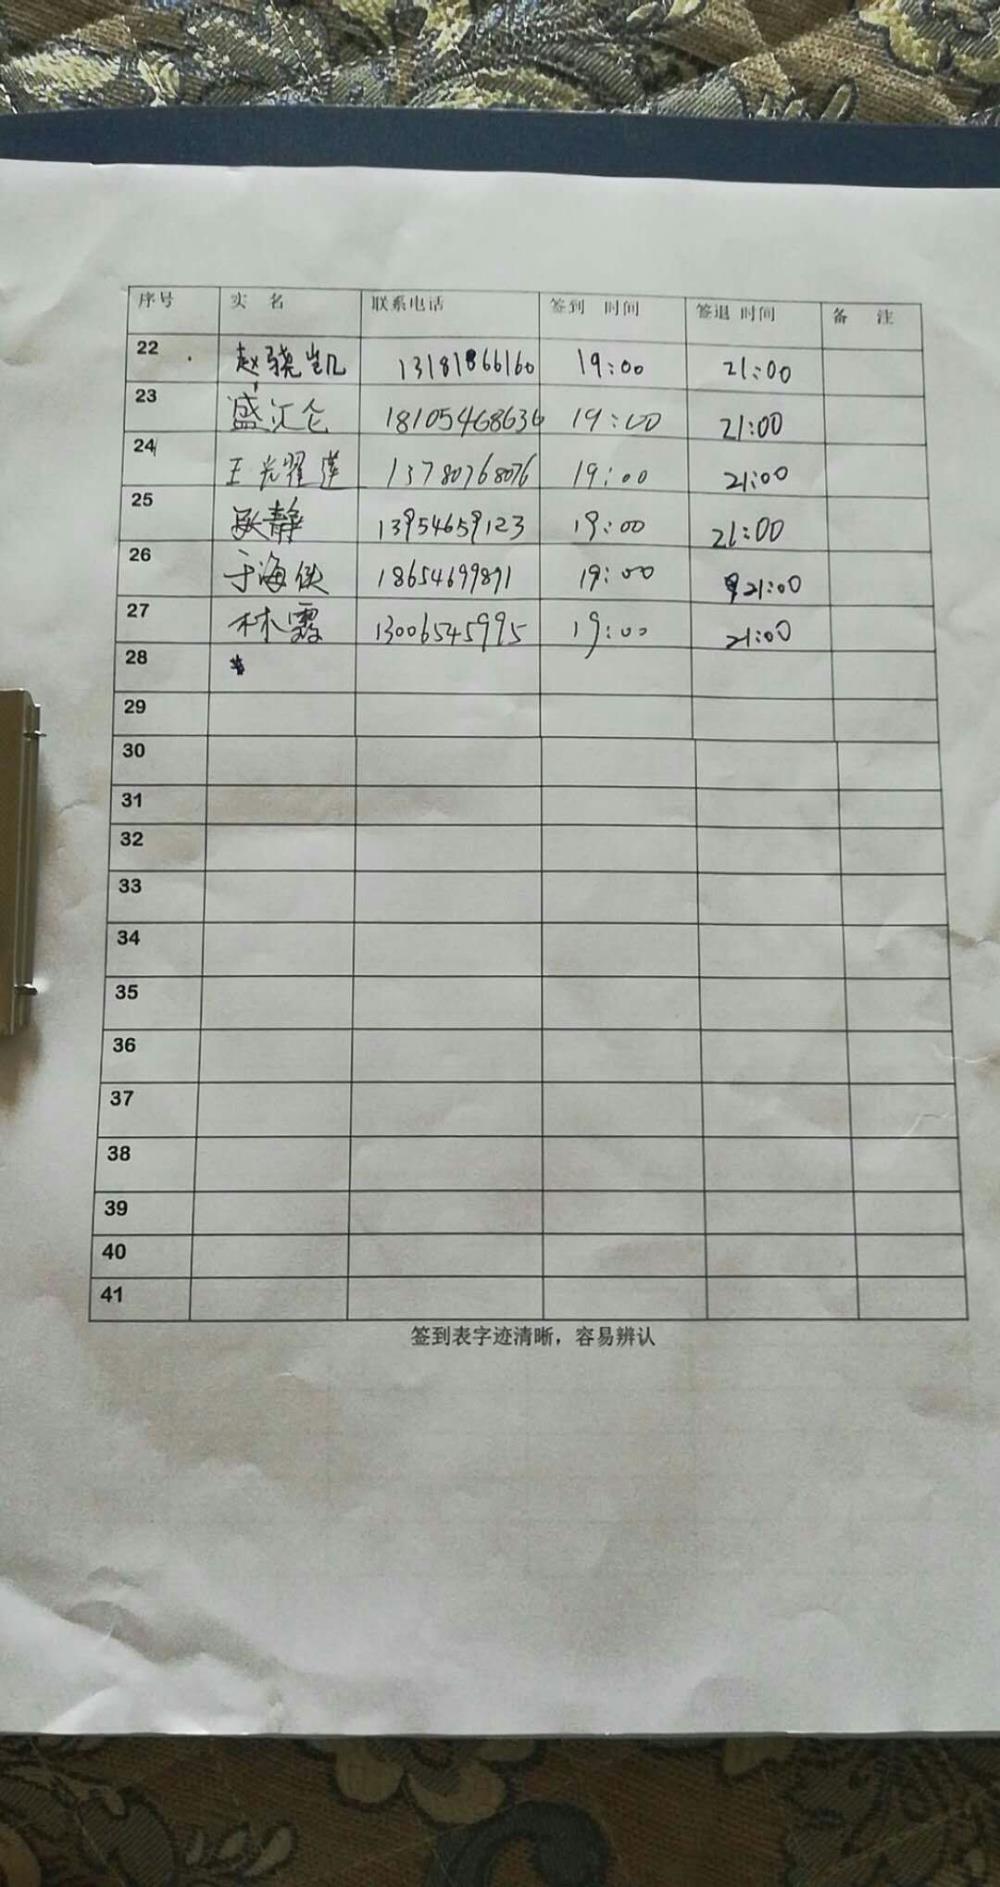 序号 实 名 联系电话 签到 时间 签退 时间 备 注
22 赵骁凯 13181866160 19:00 21:00
23 盛汇仑 18105468636 19:00 21:00
24 王光耀莲 13780768076 19:00 21:00
25 静 13954659123 19:00 21:00
26 于海侠 18654699891 19:00 21:00
27 林霞 13006545995 19:00 21:00
28
29
30
31
32
33
34
35
36
37
38
39
40
41
签到表字迹清晰，容易辨认